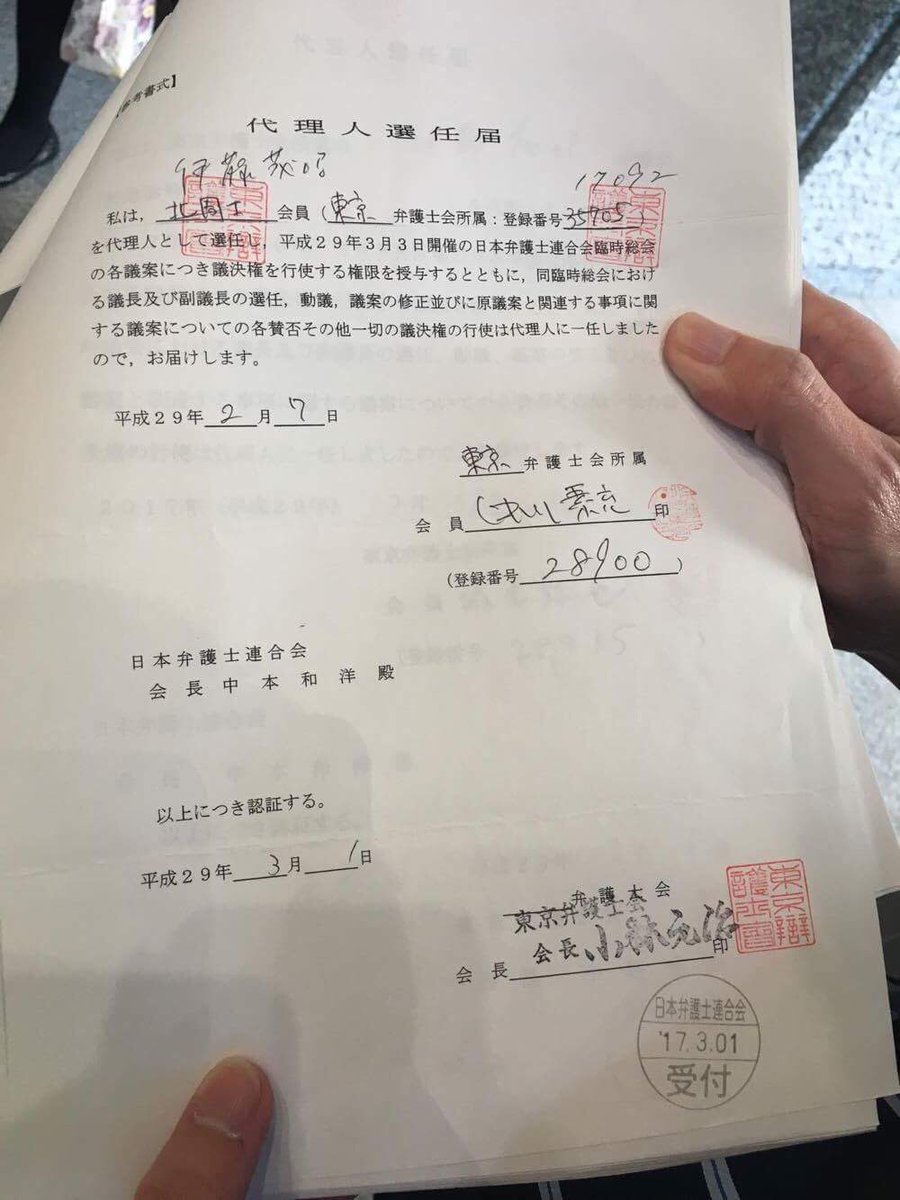 【参考書式】
代理人選任届
伊藤茂昭
17092
私は，北周士会員（東京弁護士会所属：登録番号35705）
を代理人として選任し，平成２９年３月３日開催の日本弁護士連合会臨時総会
の各議案につき議決権を行使する権限を授与するとともに，同臨時総会におけ
る議長及び副議長の選任，動議，議案の修正並びに原議案と関連する事項に関
する議案についての各賛否その他一切の議決権の行使は代理人に一任しました
ので，お届けします。
平成２９年2月7日
東京弁護士会所属
会員 印
（登録番号28900）
日本弁護士連合会
会長中本和洋殿
以上につき認証する。
平成２９年3月1日
弁護士会
東京弁護士会
会長 会長 小林元治 印
日本弁護士連合会
'17.3.01
受付